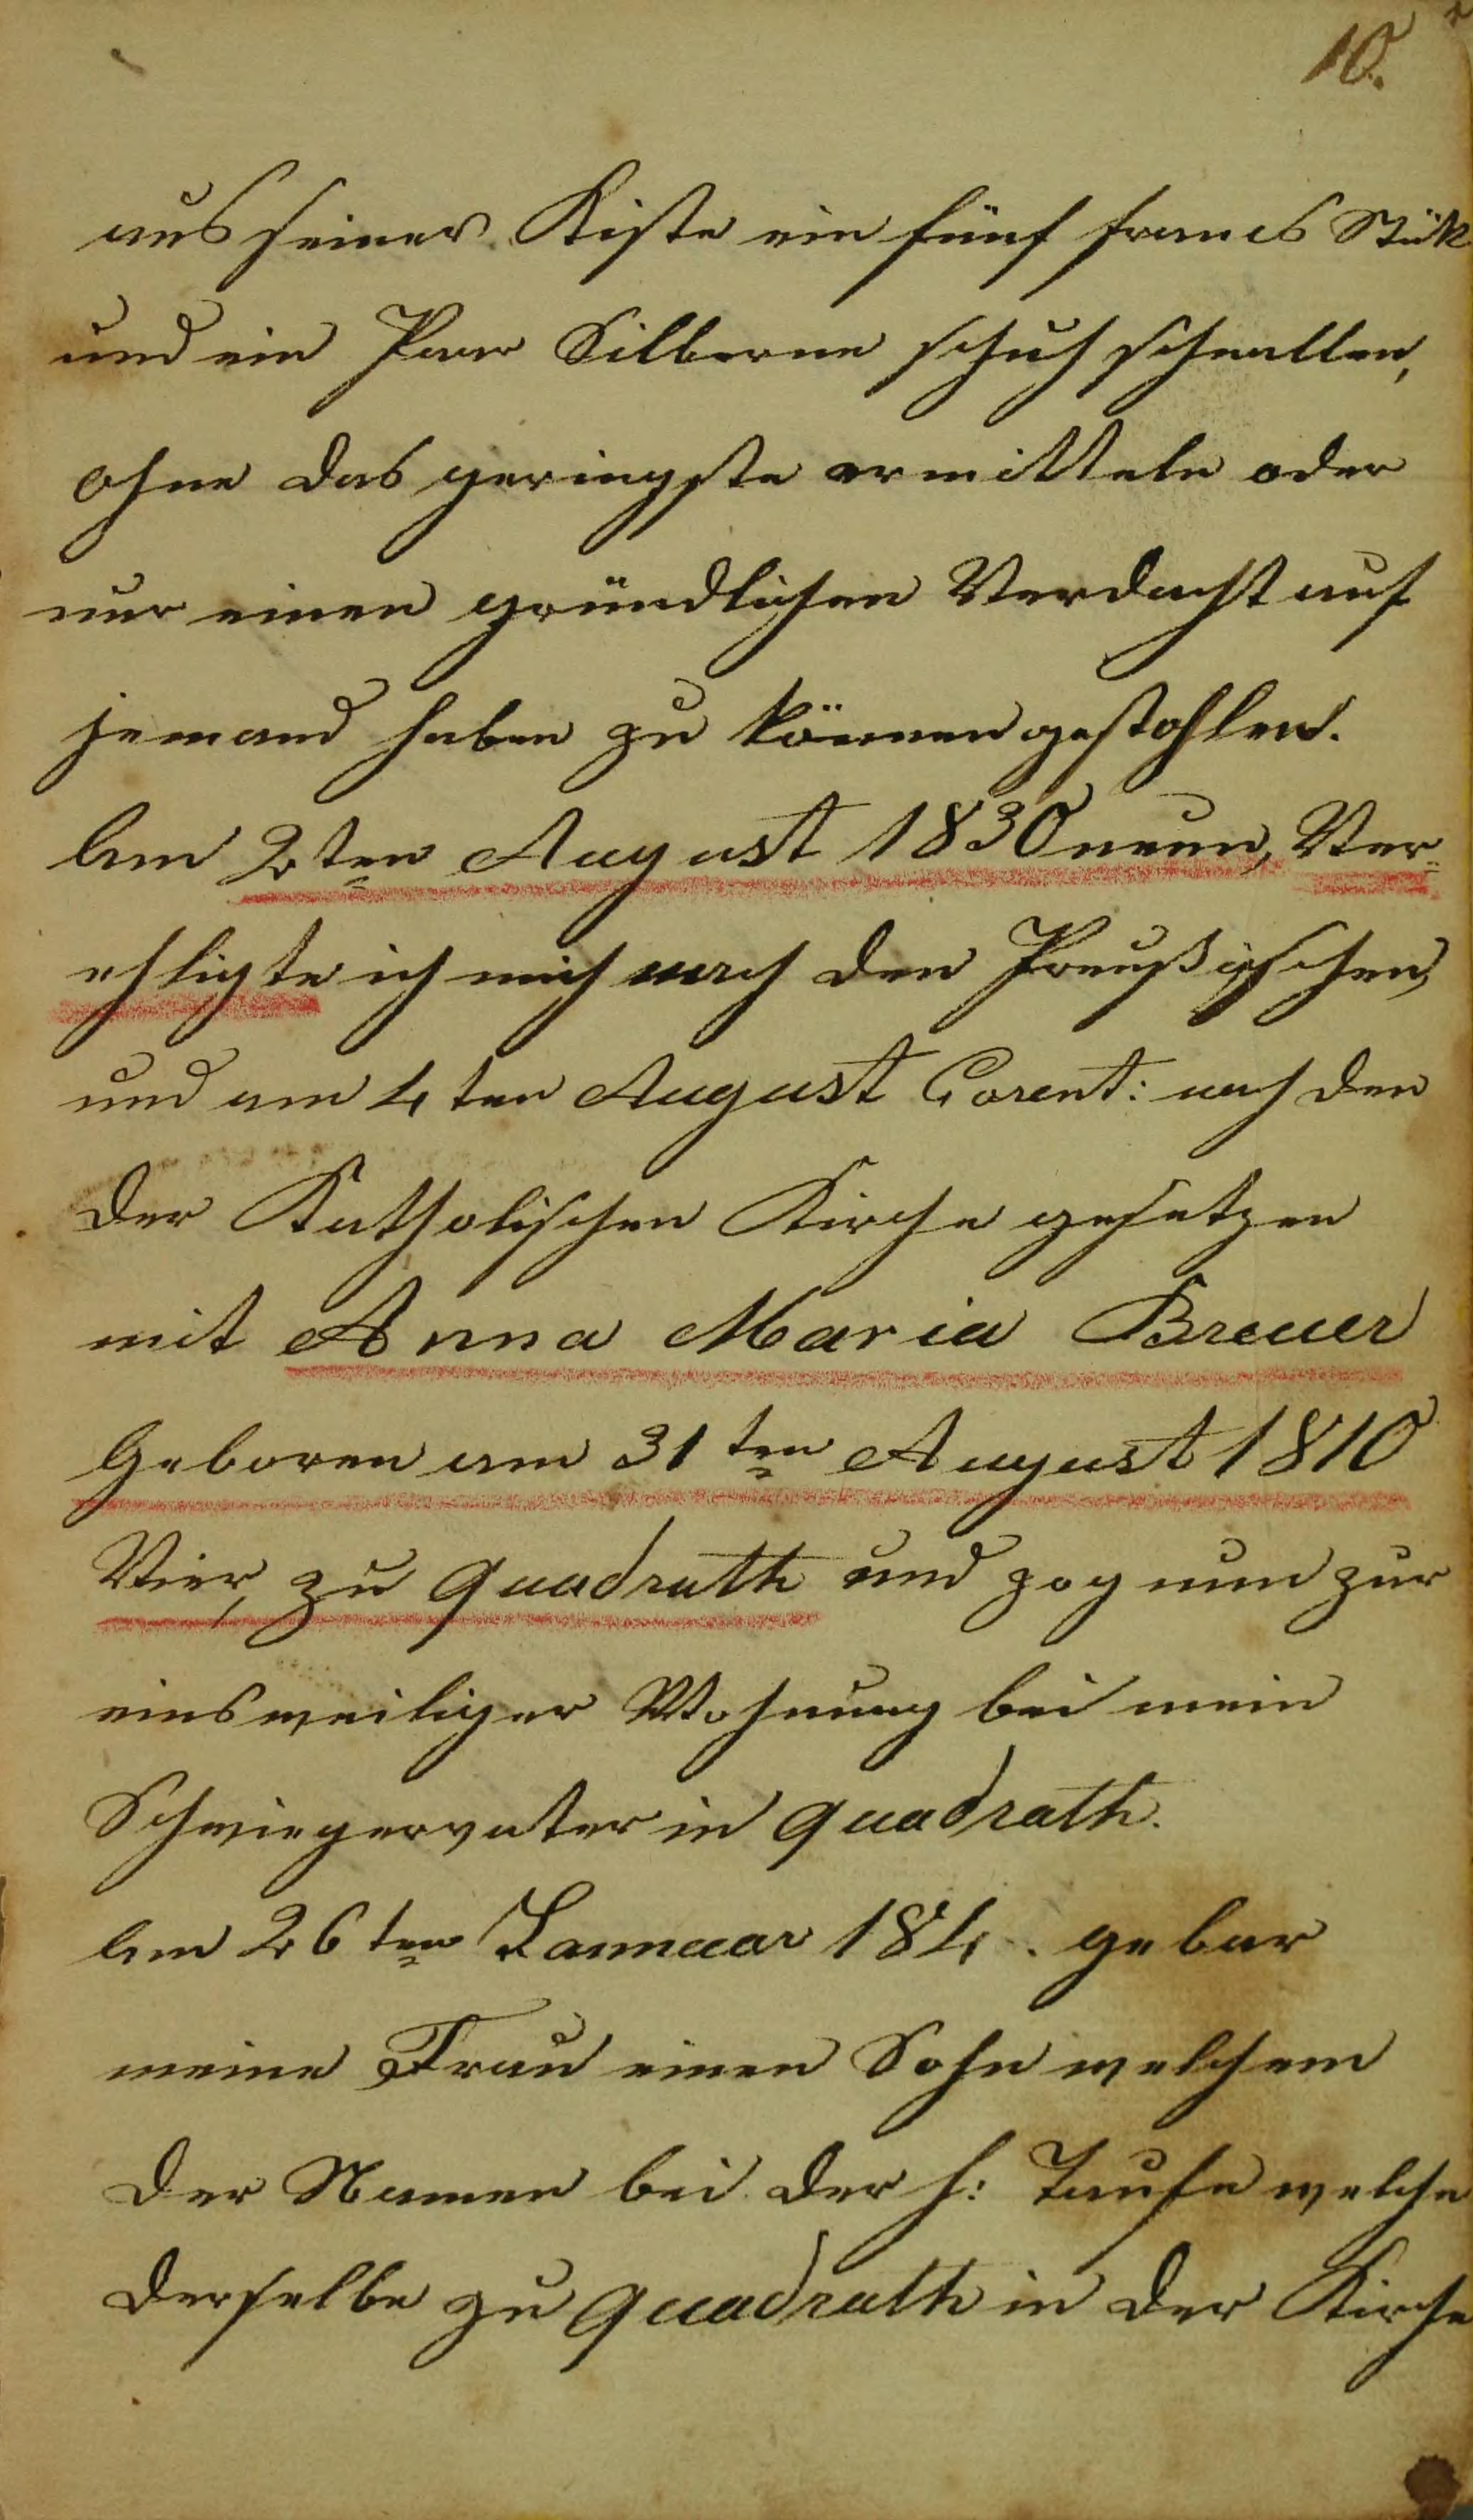 10.
aus seiner Kiste ein fünf francs Stük
und ein Paar Silberne schuh schnallen,
ohne das geringste ermitteln oder
nur einen gründlichen Verdacht auf
jemand haben zu können gestohlen.
Am 2ten August 1830 neun, Ver-
ehligte ich mich nach den Preußischen,
und am 4ten August Corent: nach den
der Katholischen Kirche gesetzen
mit Anna Maria Breuer
Geboren am 31ten August 1810
Vier, zu Quadrath und zog nun zur
einsweiliger Wohnung bei mein
Schwiegervater in Quadrath.
Am 26ten Jannuar 184. gebar
meine Frau einen Sohn welchem
der Namen bei der h: Taufe welche
derselbe zu Quadrath in der Kirche